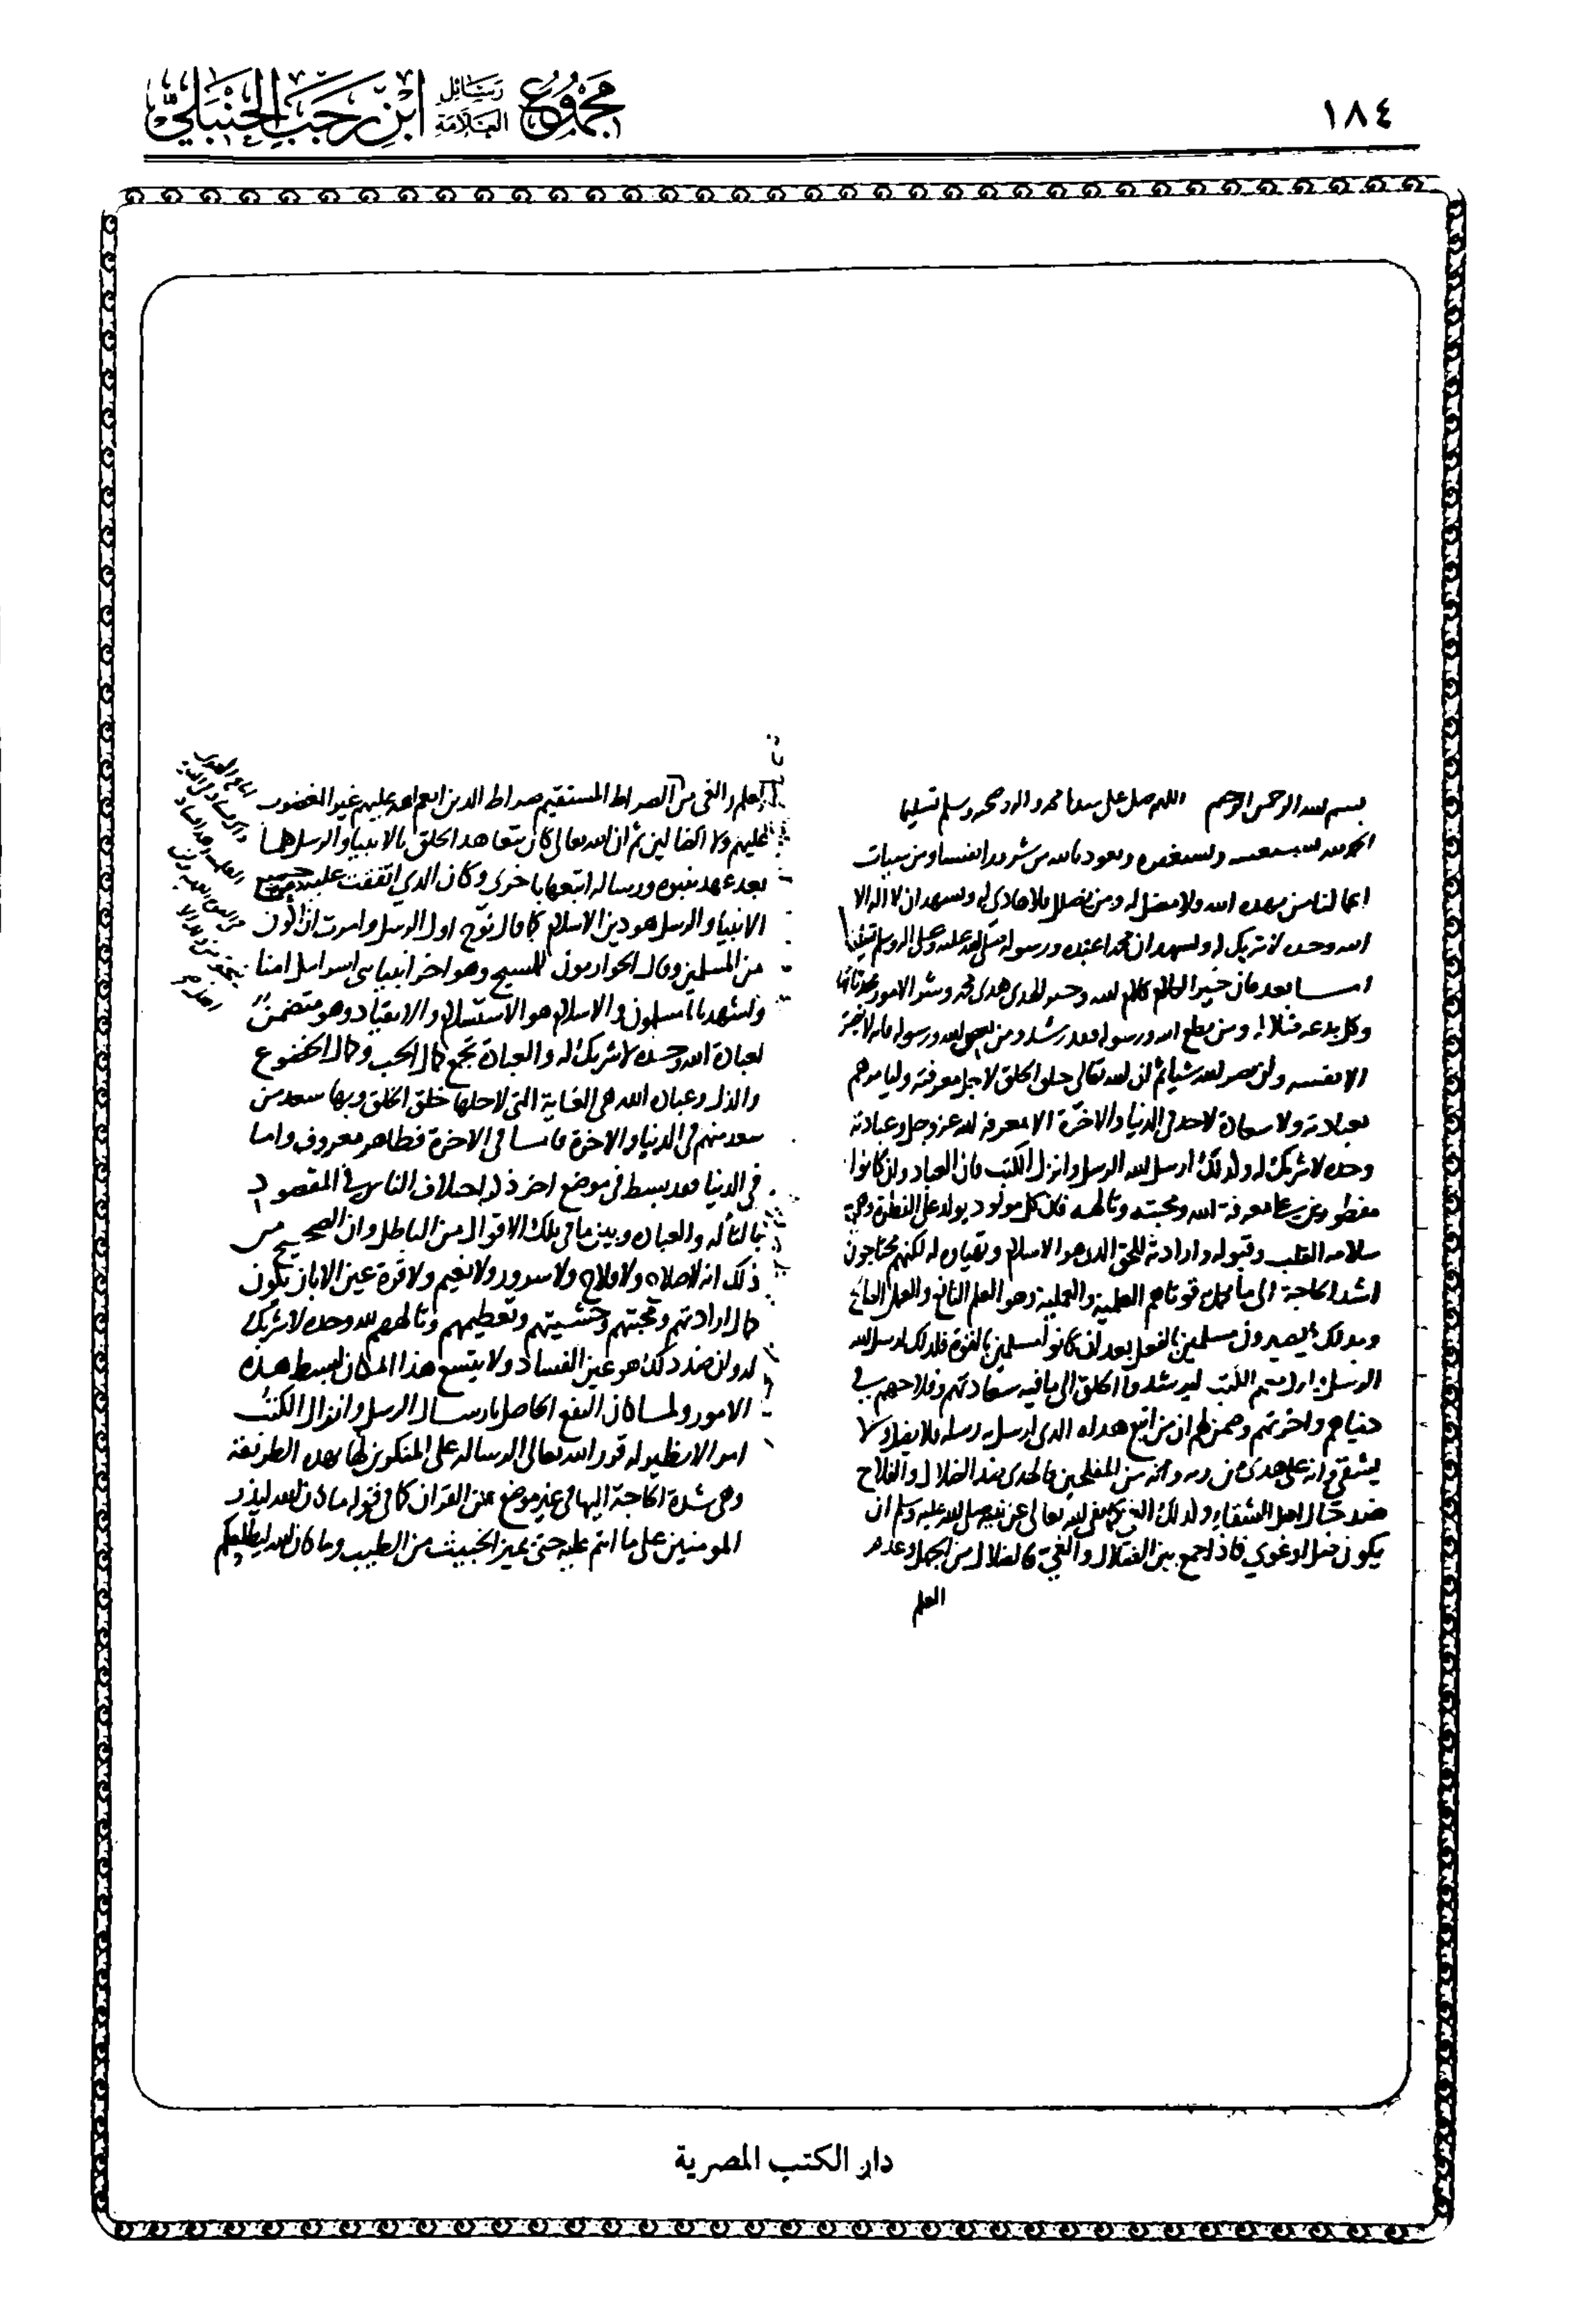 ١٨٤
مجموع رسائل العلامة ابن رجب الحنبلي
بسم الله الرحمن الرحيم اللهم صل على سيدنا محمد واله وصحبه وسلم تسليما
الحمد لله نستعينه ونستغفره ونعود بالله من شرور انفسنا ومن سيات
اعمالنا من يهده الله ولا مضل له ومن يضلل فلا هادي له ونشهد ان لا اله الا
الله وحده لا شريك له ونشهد ان محمدا عبده ورسوله صلى الله عليه وعلى اله وسلم تسليما
اما بعد فان خير الكلام كلام الله وخير الهدى هدى محمد وشر الامور محدثاتها
وكل بدعه ضلاله ومن يطع الله ورسوله فقد رشد ومن يعص الله ورسوله فانه لا يضر
الا نفسه ولن يضر الله شيا ثم ان الله تعالى خلق الخلق لاجل معرفته وليامرهم
بعبادته ولا سعادة لاحد في الدنيا والاخرة الا بمعرفة الله عز وجل وعبادته
وحده لا شريك له ولذلك ارسل الله الرسل وانزل الكتب فان العباد وان كانوا
مفطورين على معرفة الله ومحبته وتالهه فان كل مولود يولد على الفطرة وهي
سلامه القلب وقبوله وارادته للحق الذي هو الاسلام وتهياوه له لكنهم محتاجون
اشد الحاجة الى ما يكمل قوتاهم العلمية والعملية وهو العلم النافع والعمل الصالح
وبذلك يصيرون مسلمين بالفعل بعد ان كانوا مسلمين بالقوة فلذلك ارسل الله
الرسل وانزل عليهم الكتب ليرشدوا الخلق الى ما فيه سعادتهم وفلاحهم في
دنياهم واخرتهم وضمن لهم ان من اتبع هداه الذي ارسل به رسله فلا يضل ولا
يشقى وانه على هدى من ربه وانه من المفلحين فالهدى ضد الضلال والفلاح
ضد حال اهل الشقاء ولذلك نفى الله تعالى عن نبيه صلى الله عليه وسلم ان
يكون ضل او غوي فاذا جمع بين الضلال والغي فالضلال من الجهل وعدم
العلم
العلم والغي من الصراط المستقيم صراط الذين انعم الله عليهم غير المغضوب
عليهم ولا الضالين ثم ان الله تعالى كان يتعاهد الخلق بالانبيا والرسل
بعد عهد نبوه ورساله اتبعها باخرى وكان الذي اتفقت عليه جميع
الانبيا والرسل هو دين الاسلام كما قال نوح اول الرسل وامرت ان اكون
من المسلمين وقال الحواريون للمسيح وهو اخر انبيا بني اسرايل امنا
واشهد باننا مسلمون والاسلام هو الاستسلام والانقياد وهو متضمن
لعبادة الله وحده لا شريك له والعبادة تجمع كمال الحب وكمال الخضوع
والذل وعبادة الله هي الغاية التي لاجلها خلق الخلق وبها سعد من
سعد منهم في الدنيا والاخرة فاما في الاخرة فظاهر معروف واما
في الدنيا فقد بسط في موضع اخر ذكر اختلاف الناس في المقصود
بالتأله والعبادة وبين ما في تلك الاقوال من الباطل وان الصحيح من
ذلك انه لا صلاح ولا فلاح ولا سرور ولا نعيم ولا قرة عين الا بان يكون
كمال ارادتهم ومحبتهم وخشيتهم وتعظيمهم وتالههم لله وحده لا شريك
له وان ضد ذلك هو عين الفساد ولا يتسع هذا المكان لبسط هذه
الامور ولما كان النفع الحاصل بارسال الرسل وانزال الكتب
امرا لا نظير له قرر الله تعالى الرساله على المنكرين لها بهذه الطريقة
وهي شدة الحاجة اليها في غير موضع من القران كما في قوله ما كان الله ليذر
المومنين على ما انتم عليه حتى يميز الخبيث من الطيب وما كان الله ليطلعكم
دار الكتب المصرية